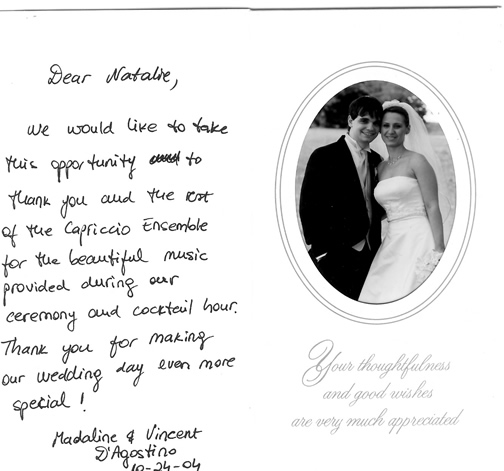 Dear Natalie,
We would like to take
this opportunity to
thank you and the rest
of the Capriccio Ensemble
for the beautiful music
provided during our
ceremony and cocktail hour.
Thank you for making
our wedding day even more
special!
Madaline & Vincent
D'Agostino
10-24-04
Your thoughtfulness
and good wishes
are very much appreciated